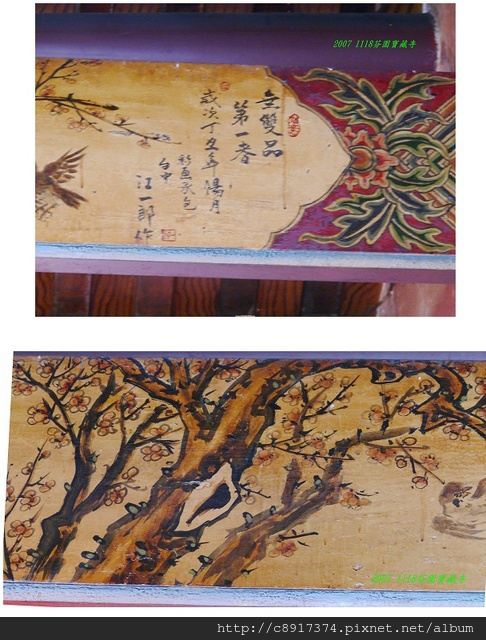 2007 1118芬園寶藏寺
無雙品
第一春
歲次丁丑年陽月
彩畫承包
台中
江一郎作
2007 1118芬園寶藏寺
http://c8917374.pixnet.net/album